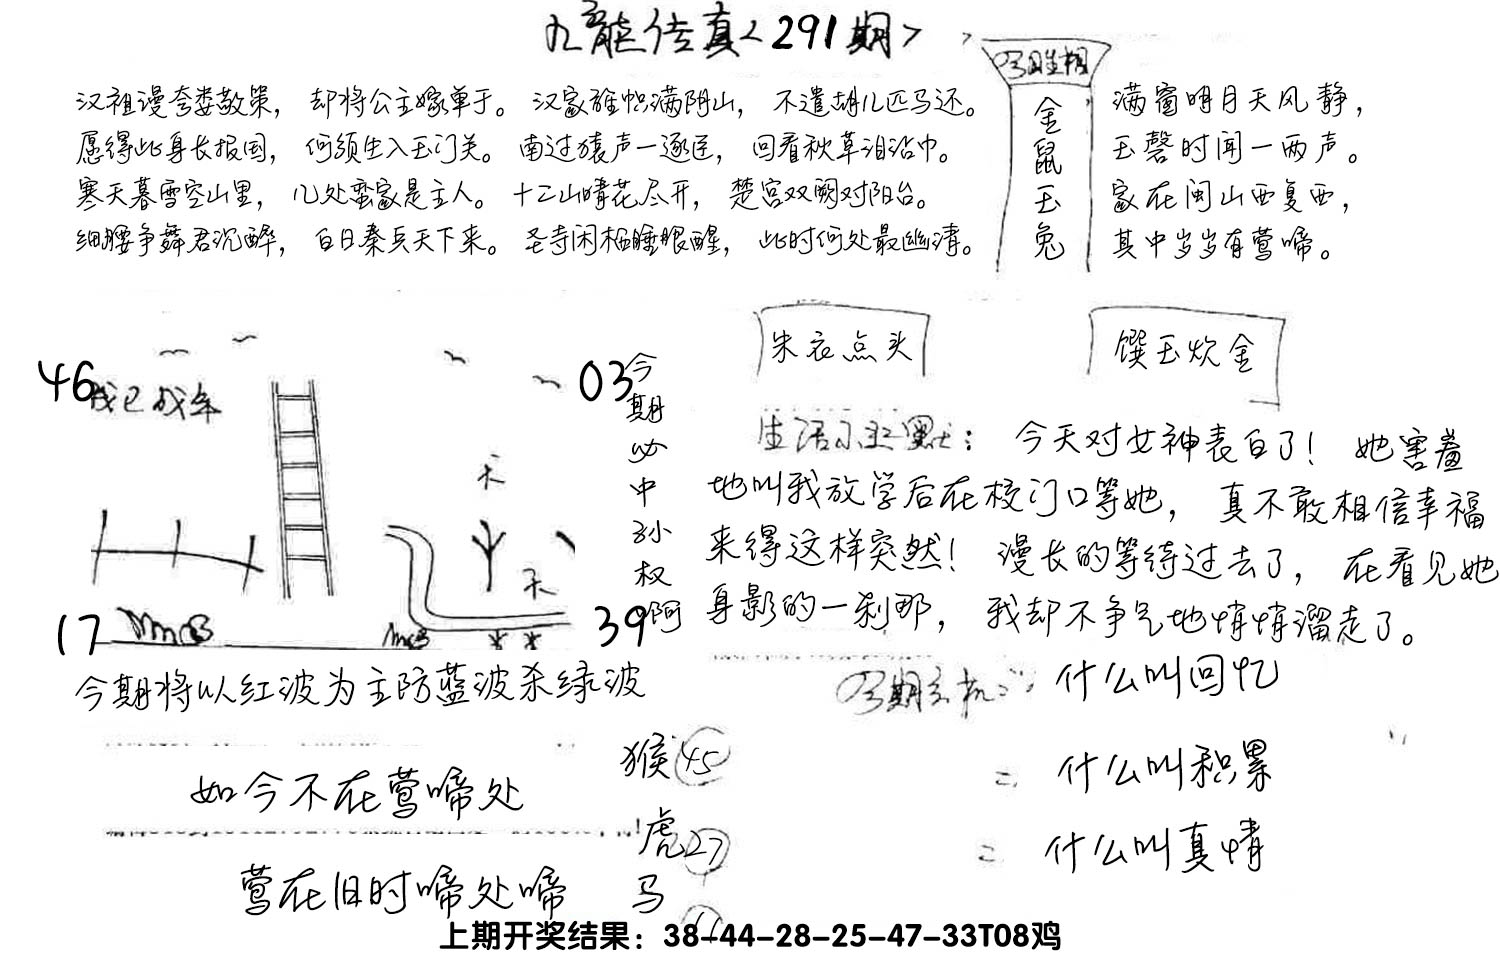 九龙传真<291期>
汉祖谩夸娄敬策，却将公主嫁单于。汉家旌帜满阴山，不遣胡儿匹马还。
愿得此身长报国，何须生入玉门关。南过猿声一逐臣，回看秋草泪沾巾。
寒天暮雪空山里，几处蛮家是主人。十二山晴花尽开，楚宫双阙对阳台。
细腰争舞君沉醉，白日秦兵天下来。圣寺闲栖睡眼醒，此时何处最幽清。
金鼠玉兔
满窗明月天风静，
玉磬时闻一两声。
家在闽山西复西，
其中岁岁有莺啼。
46
03
17
39
今期必中孙权啊
朱衣点头
馔玉炊金
生活小幽默：今天对女神表白了！她害羞
地叫我放学后在校门口等她，真不敢相信幸福
来得这样突然！漫长的等待过去了，在看见她
身影的一刹那，我却不争气地悄悄溜走了。
今期将以红波为主防蓝波杀绿波
什么叫回忆
什么叫积累
什么叫真情
如今不在莺啼处
莺在旧时啼处啼
猴45
虎27
马
上期开奖结果：38-44-28-25-47-33T08鸡